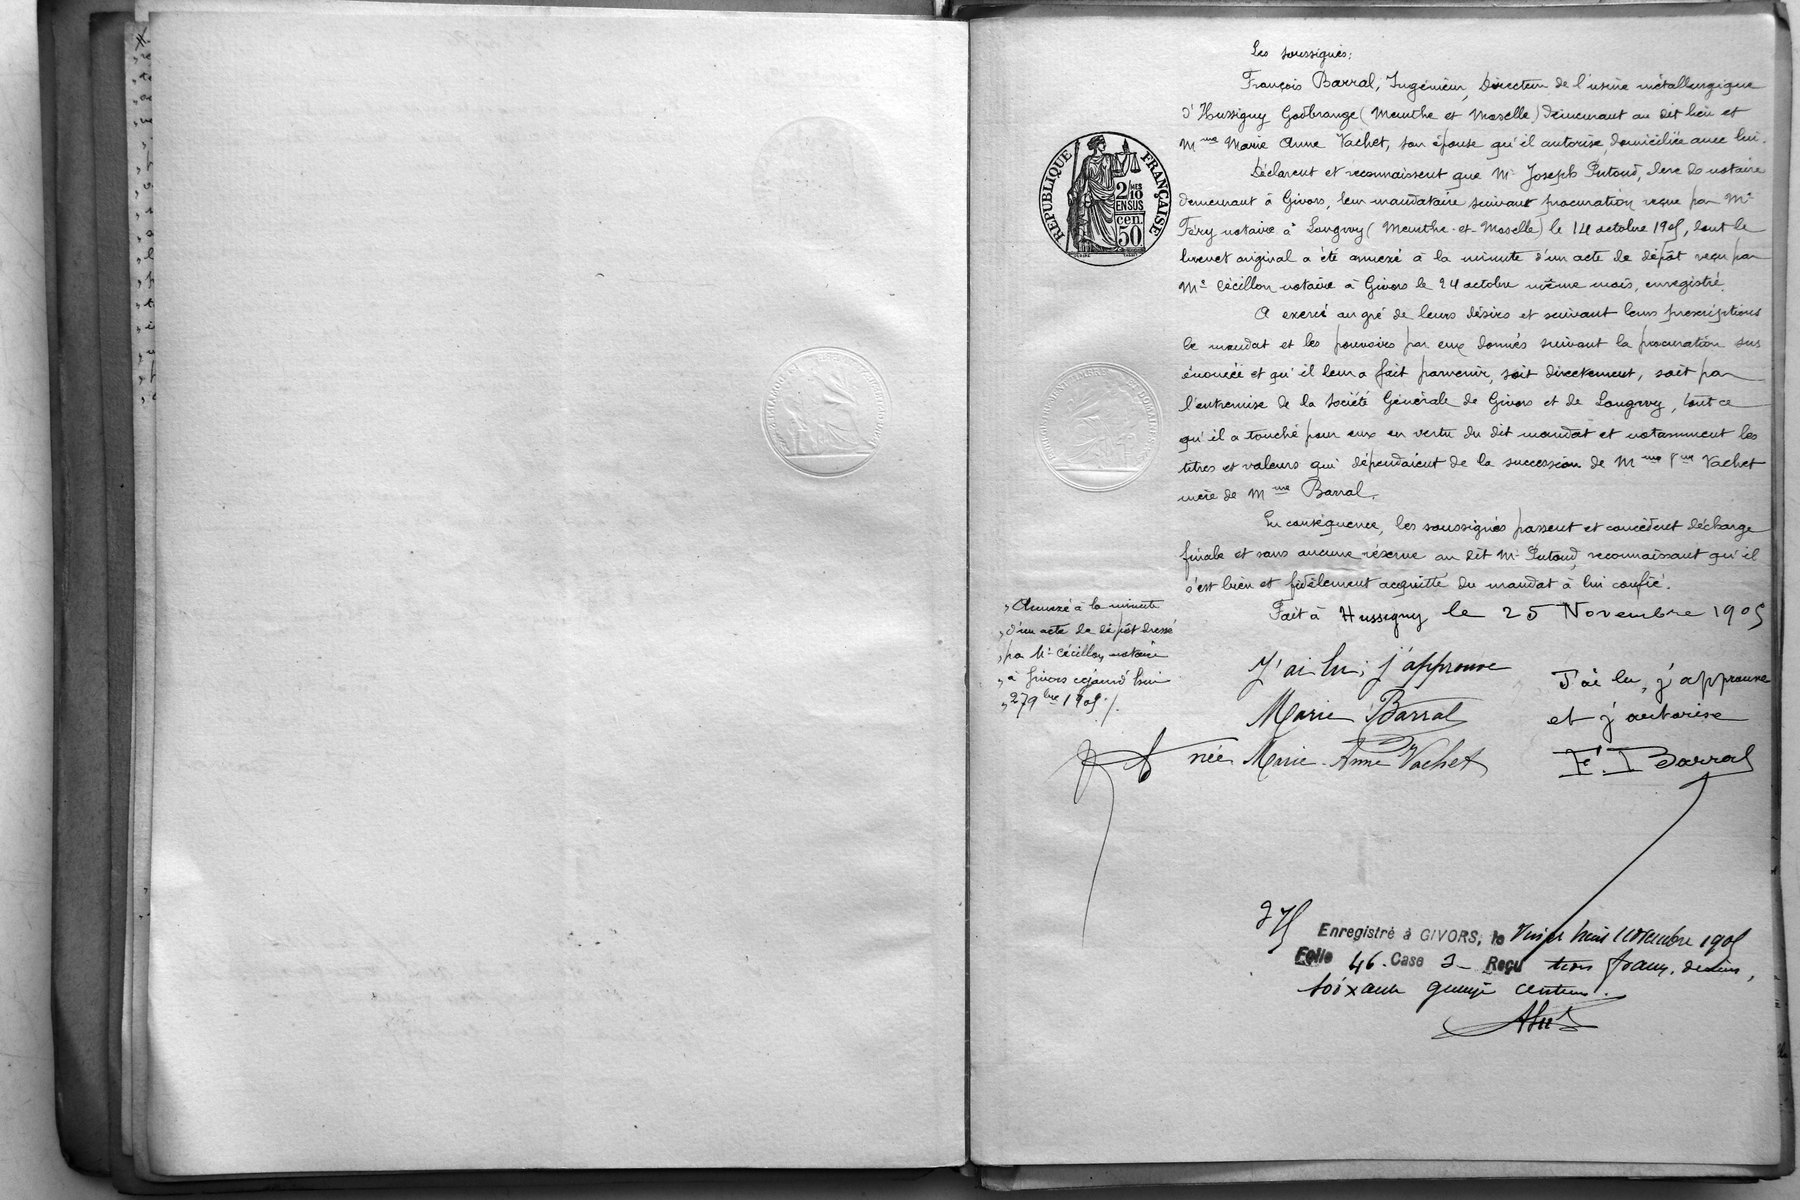 Les soussignés:
François Barral, Ingénieur, Directeur de l'usine métallurgique
d'Hussigny Godbrange (Meurthe et Moselle) demeurant au dit lieu et
Mme Marie Anne Vachet, son épouse qu'il autorise, domiciliée avec lui.
Déclarent et reconnaissent que Mr Joseph Putoud, clerc de notaire
demeurant à Givors, leur mandataire suivant procuration reçue par Me
Féry notaire à Longwy (Meurthe-et-Moselle) le 14 octobre 1905, dont le
brevet original a été annexé à la minute d'un acte de dépôt reçu par
Me Cécillon notaire à Givors le 24 octobre même mois, enregistré.
A exercé au gré de leurs désirs et suivant leurs prescriptions
le mandat et les pouvoirs par eux donnés suivant la procuration sus
énoncée et qu'il leur a fait parvenir, soit directement, soit par
l'entremise de la Société Générale de Givors et de Longwy, tout ce
qu'il a touché pour eux en vertu du dit mandat et notamment les
titres et valeurs qui dépendaient de la succession de Mme Vve Vachet
mère de Mme Barral.
En conséquence, les soussignés passent et concèdent décharge
finale et sans aucune réserve au dit Mr Putoud, reconnaissant qu'il
s'est bien et fidèlement acquitté du mandat à lui confié.
Fait à Hussigny le 25 Novembre 1905
REPUBLIQUE FRANÇAISE
2/10 MES
EN SUS
50 cen.
Annexé à la minute
d'un acte de dépôt dressé
par Me Cécillon notaire
à Givors cejourd'hui
27 9bre 1905 ./.
J'ai lu, j'approuve
Marie Barral
née Marie-Anne Vachet
J'ai lu, j'approuve
et j'autorise
F. Barral
Enregistré à GIVORS, le Vingt huit novembre 1905
Folio 46. Case 3 Reçu trois francs, décimes,
soixante quinze centimes.